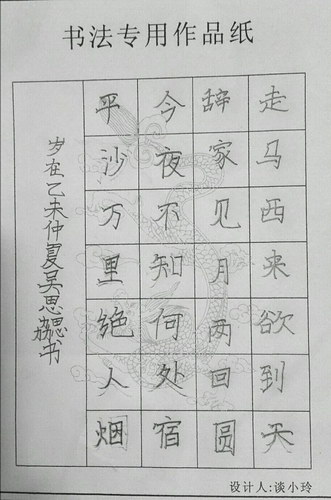 书法专用作品纸
走马西来欲到天
辞家见月两回圆
今夜不知何处宿
平沙万里绝人烟
岁在乙未仲夏吴思书
设计人:谈小玲